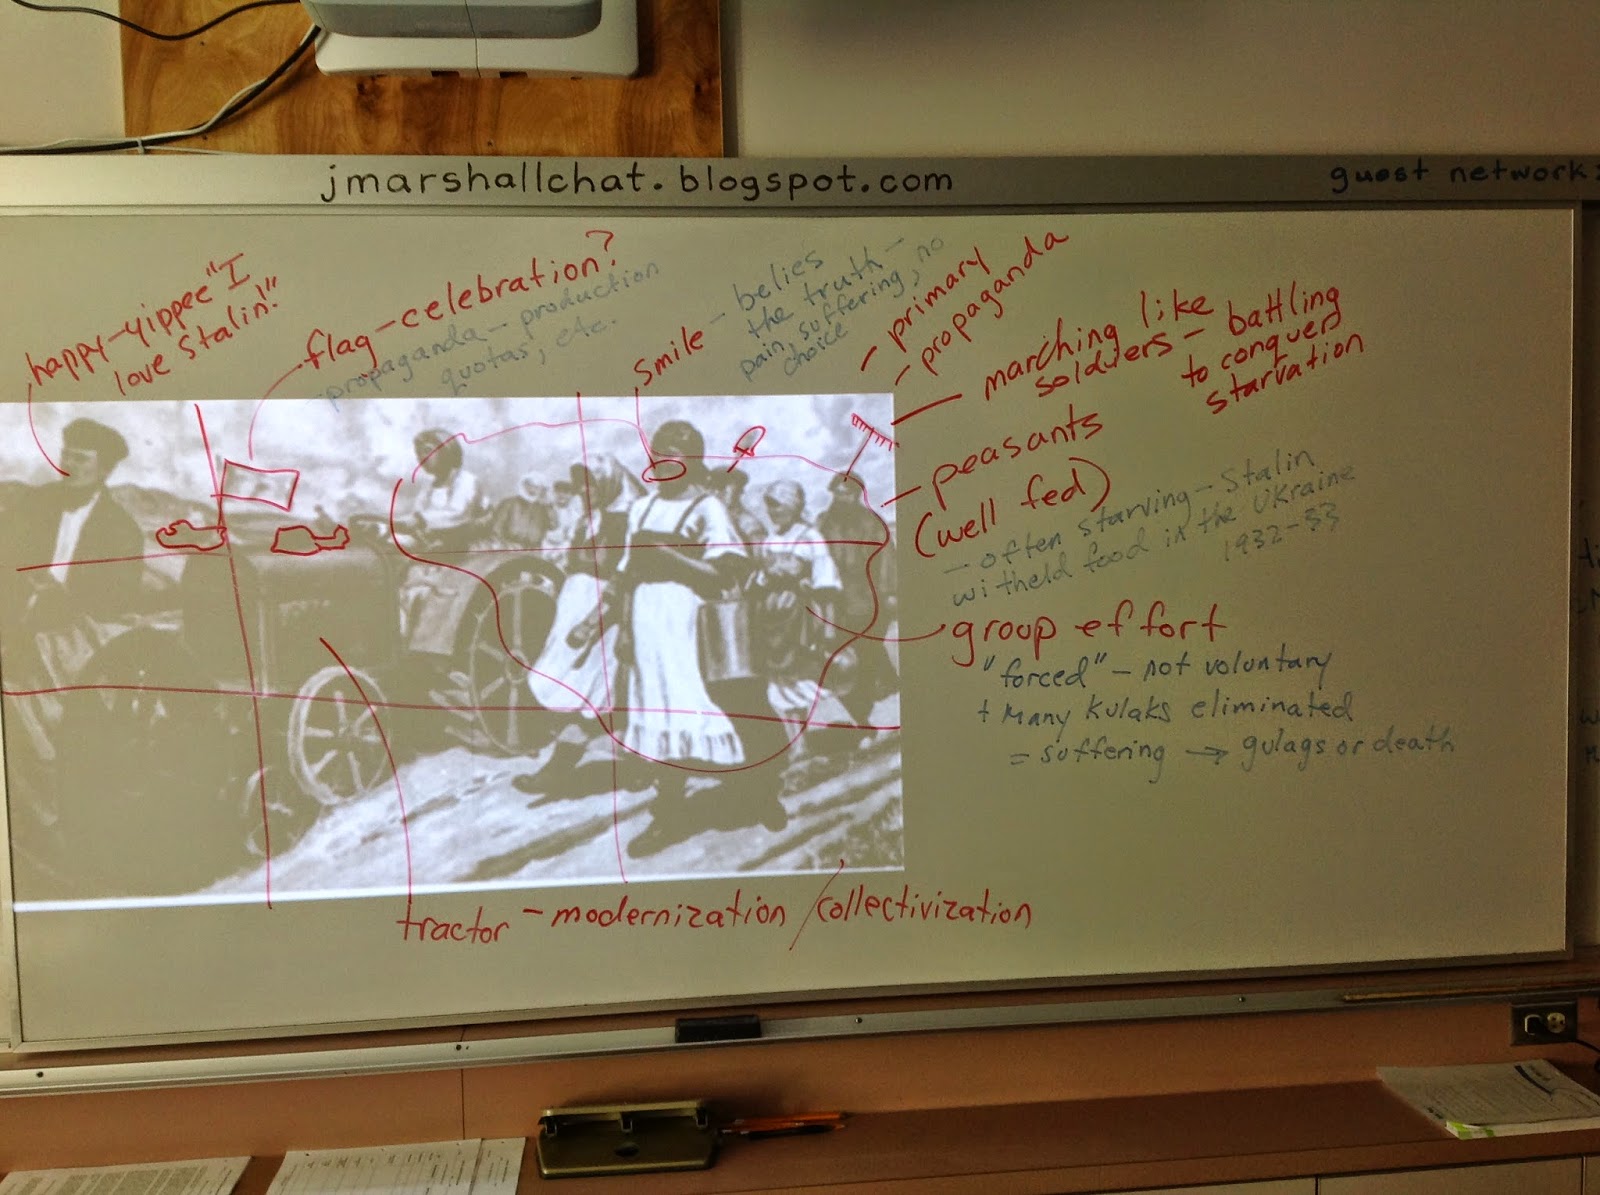 jmarshallchat.blogspot.com
guest network:
happy-yippee "I
love Stalin!"
flag-celebration?
propaganda-production
quotas, etc.
smile - belies
the truth-
pain, suffering, no
choice
- primary
- propaganda
marching like
solders - battling
to conquer
starvation
- peasants
(well fed)
- often starving - Stalin
witheld food in the Ukraine
1932-33
group effort
"forced" - not voluntary
+ Many kulaks eliminated
= suffering → gulags or death
tractor - modernization / collectivization